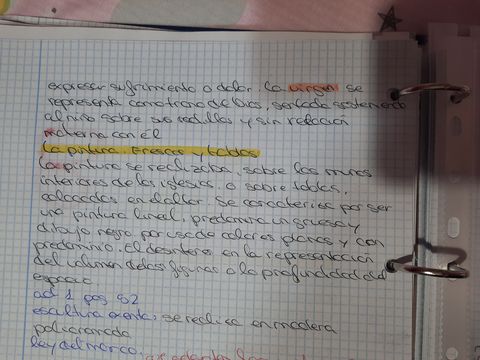 expresar sufrimiento o dolor. La virgen se
representa como trono de Dios, sentada sosteniendo
al niño sobre sus rodillas y sin relación
materna con él
La pintura. Frescos y tablas
La pintura se realizaba, sobre los muros
interiores de las iglesias, o sobre tablas,
colocadas en el altar. Se caracteriza por ser
una pintura lineal, predomina un grueso y
dibujo negro por uso de colores planos y con
predominio. El desinteres en la representación
del volumen de las figuras o la profundidad del
espacio.
act 1 pag 52
escultura exenta: se realiza en madera
policromada
ley del marco: se adaptan